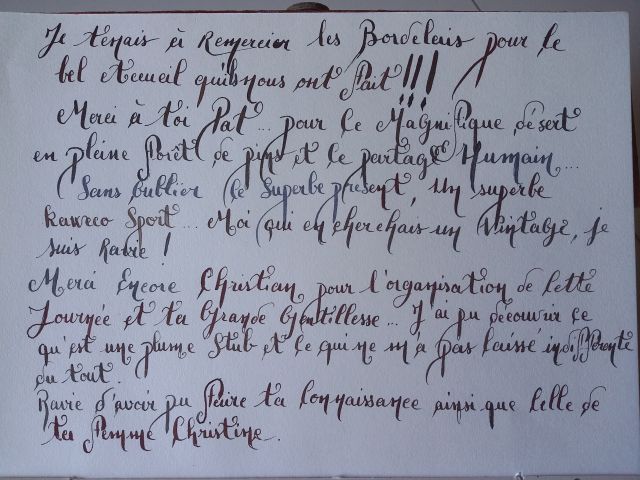 Je tenais à Remercier les Bordelais pour le
bel Accueil qu'ils nous ont fait !!!
Merci à toi Pat... pour ce Magnifique désert
en pleine forêt de pins et le partage Humain...
Sans oublier le Superbe présent, un superbe
Kaweco Sport... Moi qui en cherchais un Vintage, je
suis Ravie !
Merci Encore Christian pour l'organisation de Cette
Journée et ta Grande Gentillesse... J'ai pu découvrir ce
qu'est une plume Stub et ce qui ne m'a pas laissé indifférente
du tout.
Ravie d'avoir pu faire ta Connaissance ainsi que Celle de
ta femme Christine.